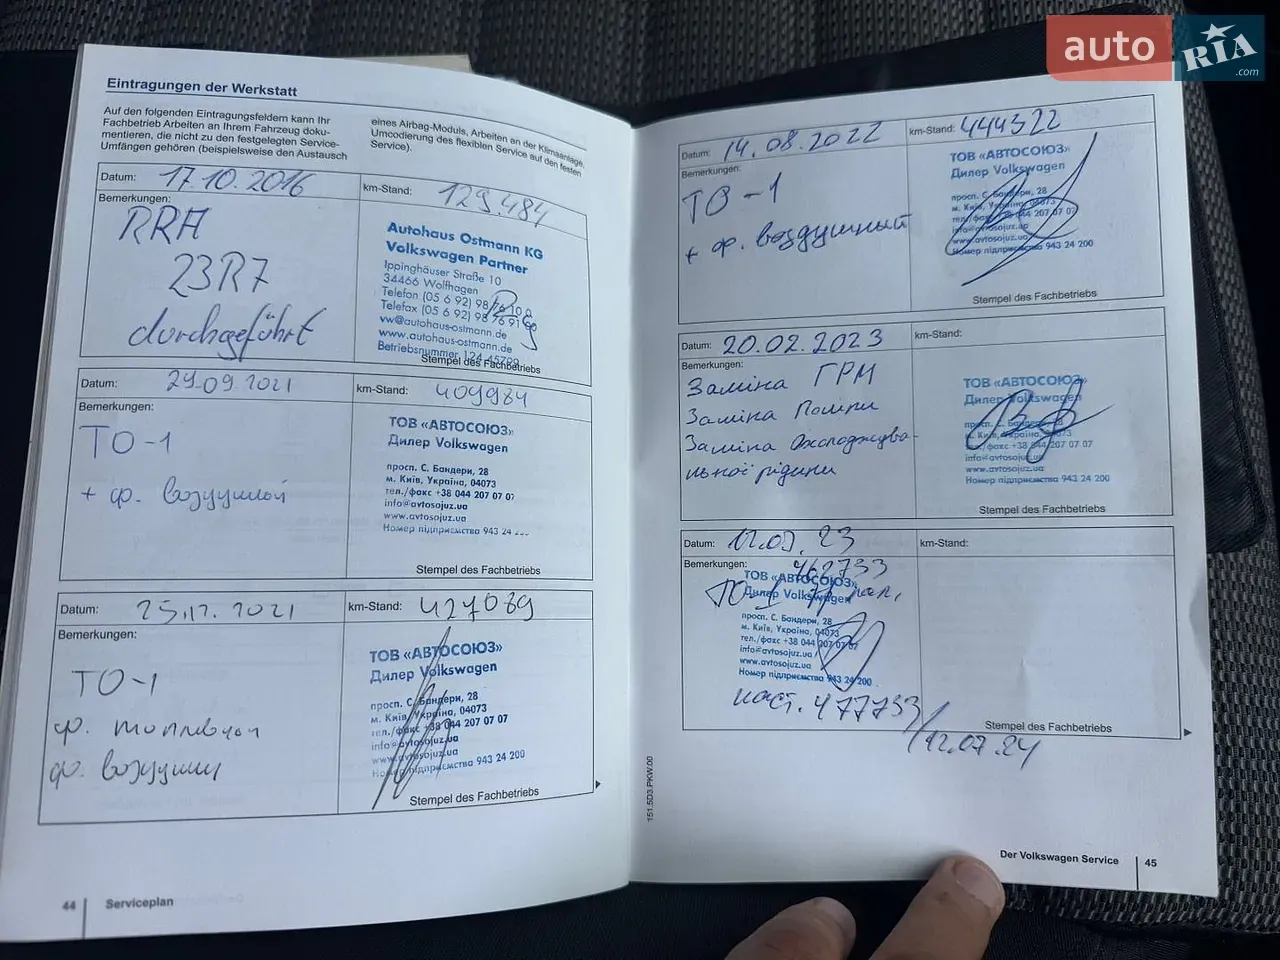 auto RIA .com
Eintragungen der Werkstatt
Auf den folgenden Eintragungsfeldern kann Ihr
Fachbetrieb Arbeiten an Ihrem Fahrzeug doku-
mentieren, die nicht zu den festgelegten Service-
Umfängen gehören (beispielsweise den Austausch
eines Airbag-Moduls, Arbeiten an der Klimaanlage,
Umcodierung des flexiblen Service auf den festen
Service).
Datum: 17.10.2016
km-Stand: 129.484
Bemerkungen:
RRA
23R7
durchgeführt
Autohaus Ostmann KG
Volkswagen Partner
Ippinghäuser Straße 10
34466 Wolfhagen
Telefon (05 6 92) 98
Telefax (05 6 92) 98 76 91
vw@autohaus-ostmann.de
www.autohaus-ostmann.de
Betriebsnummer 124 45799
Stempel des Fachbetriebs
Datum: 29.09.2021
km-Stand: 409984
Bemerkungen:
ТО-1
+ ф.
ТОВ «АВТОСОЮЗ»
Дилер Volkswagen
просп. С. Бандери, 28
м. Київ, Україна, 04073
тел./факс +38 044 207 07 07
info@avtosojuz.ua
www.avtosojuz.ua
Номер підприємства 943 24
Stempel des Fachbetriebs
Datum: 25.12.2021
km-Stand: 427089
Bemerkungen:
ТО-1
ф.
ф.
ТОВ «АВТОСОЮЗ»
Дилер Volkswagen
просп. С. Бандери, 28
м. Київ, Україна, 04073
тел./факс +38 044 207 07 07
info@avtosojuz.ua
www.avtosojuz.ua
Номер підприємства 943 24 200
Stempel des Fachbetriebs
44 Serviceplan
Datum: 14.08.2022
km-Stand: 444322
Bemerkungen:
ТО-1
+ ф. воздушный
ТОВ «АВТОСОЮЗ»
Дилер Volkswagen
просп. С. Бандери, 28
м. Київ, Україна, 04073
тел./факс +38 044 207 07 07
info@avtosojuz.ua
www.avtosojuz.ua
Номер підприємства 943 24 200
Stempel des Fachbetriebs
Datum: 20.02.2023
km-Stand:
Bemerkungen:
Заміна ГРМ
Заміна Помпи
Заміна Охолоджува-
льної рідини
ТОВ «АВТОСОЮЗ»
Дилер Volkswagen
просп. С. Бандери, 28
м. Київ, Україна, 04073
тел./факс +38 044 207 07 07
info@avtosojuz.ua
www.avtosojuz.ua
Номер підприємства 943 24 200
Stempel des Fachbetriebs
Datum: 12.07.23
km-Stand:
Bemerkungen:
462733
ТО
ТОВ «АВТОСОЮЗ»
Дилер Volkswagen
просп. С. Бандери, 28
м. Київ, Україна, 04073
тел./факс +38 044 207 07 07
info@avtosojuz.ua
www.avtosojuz.ua
Номер підприємства 943 24 200
наст. 477733/
12.07.24
Stempel des Fachbetriebs
151.5D3.PKW.00
Der Volkswagen Service 45